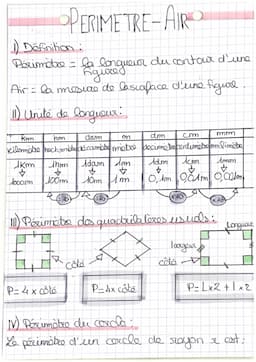 PERIMETRE-AIR
I) Définition :
Périmètre = la longueur du contour d'une figure
Air = la mesure de la surface d'une figure.
II) Unité de longueur :
Km hm dam m dm cm mm
kilomètre hectomètre décamètre mètre décimètre centimètre millimètre
1km 1hm 1dam 1m 1dm 1cm 1mm
1000m 100m 10m 1m 0,1m 0,01m 0,001m
III) Périmètre des quadrilatères usuels :
longueur
largeur
côté côté
P= 4 x côté P= 4x côté P= Lx2 + l x 2
IV) Périmètre du cercle :
Le périmètre d'un cercle de rayon r est :